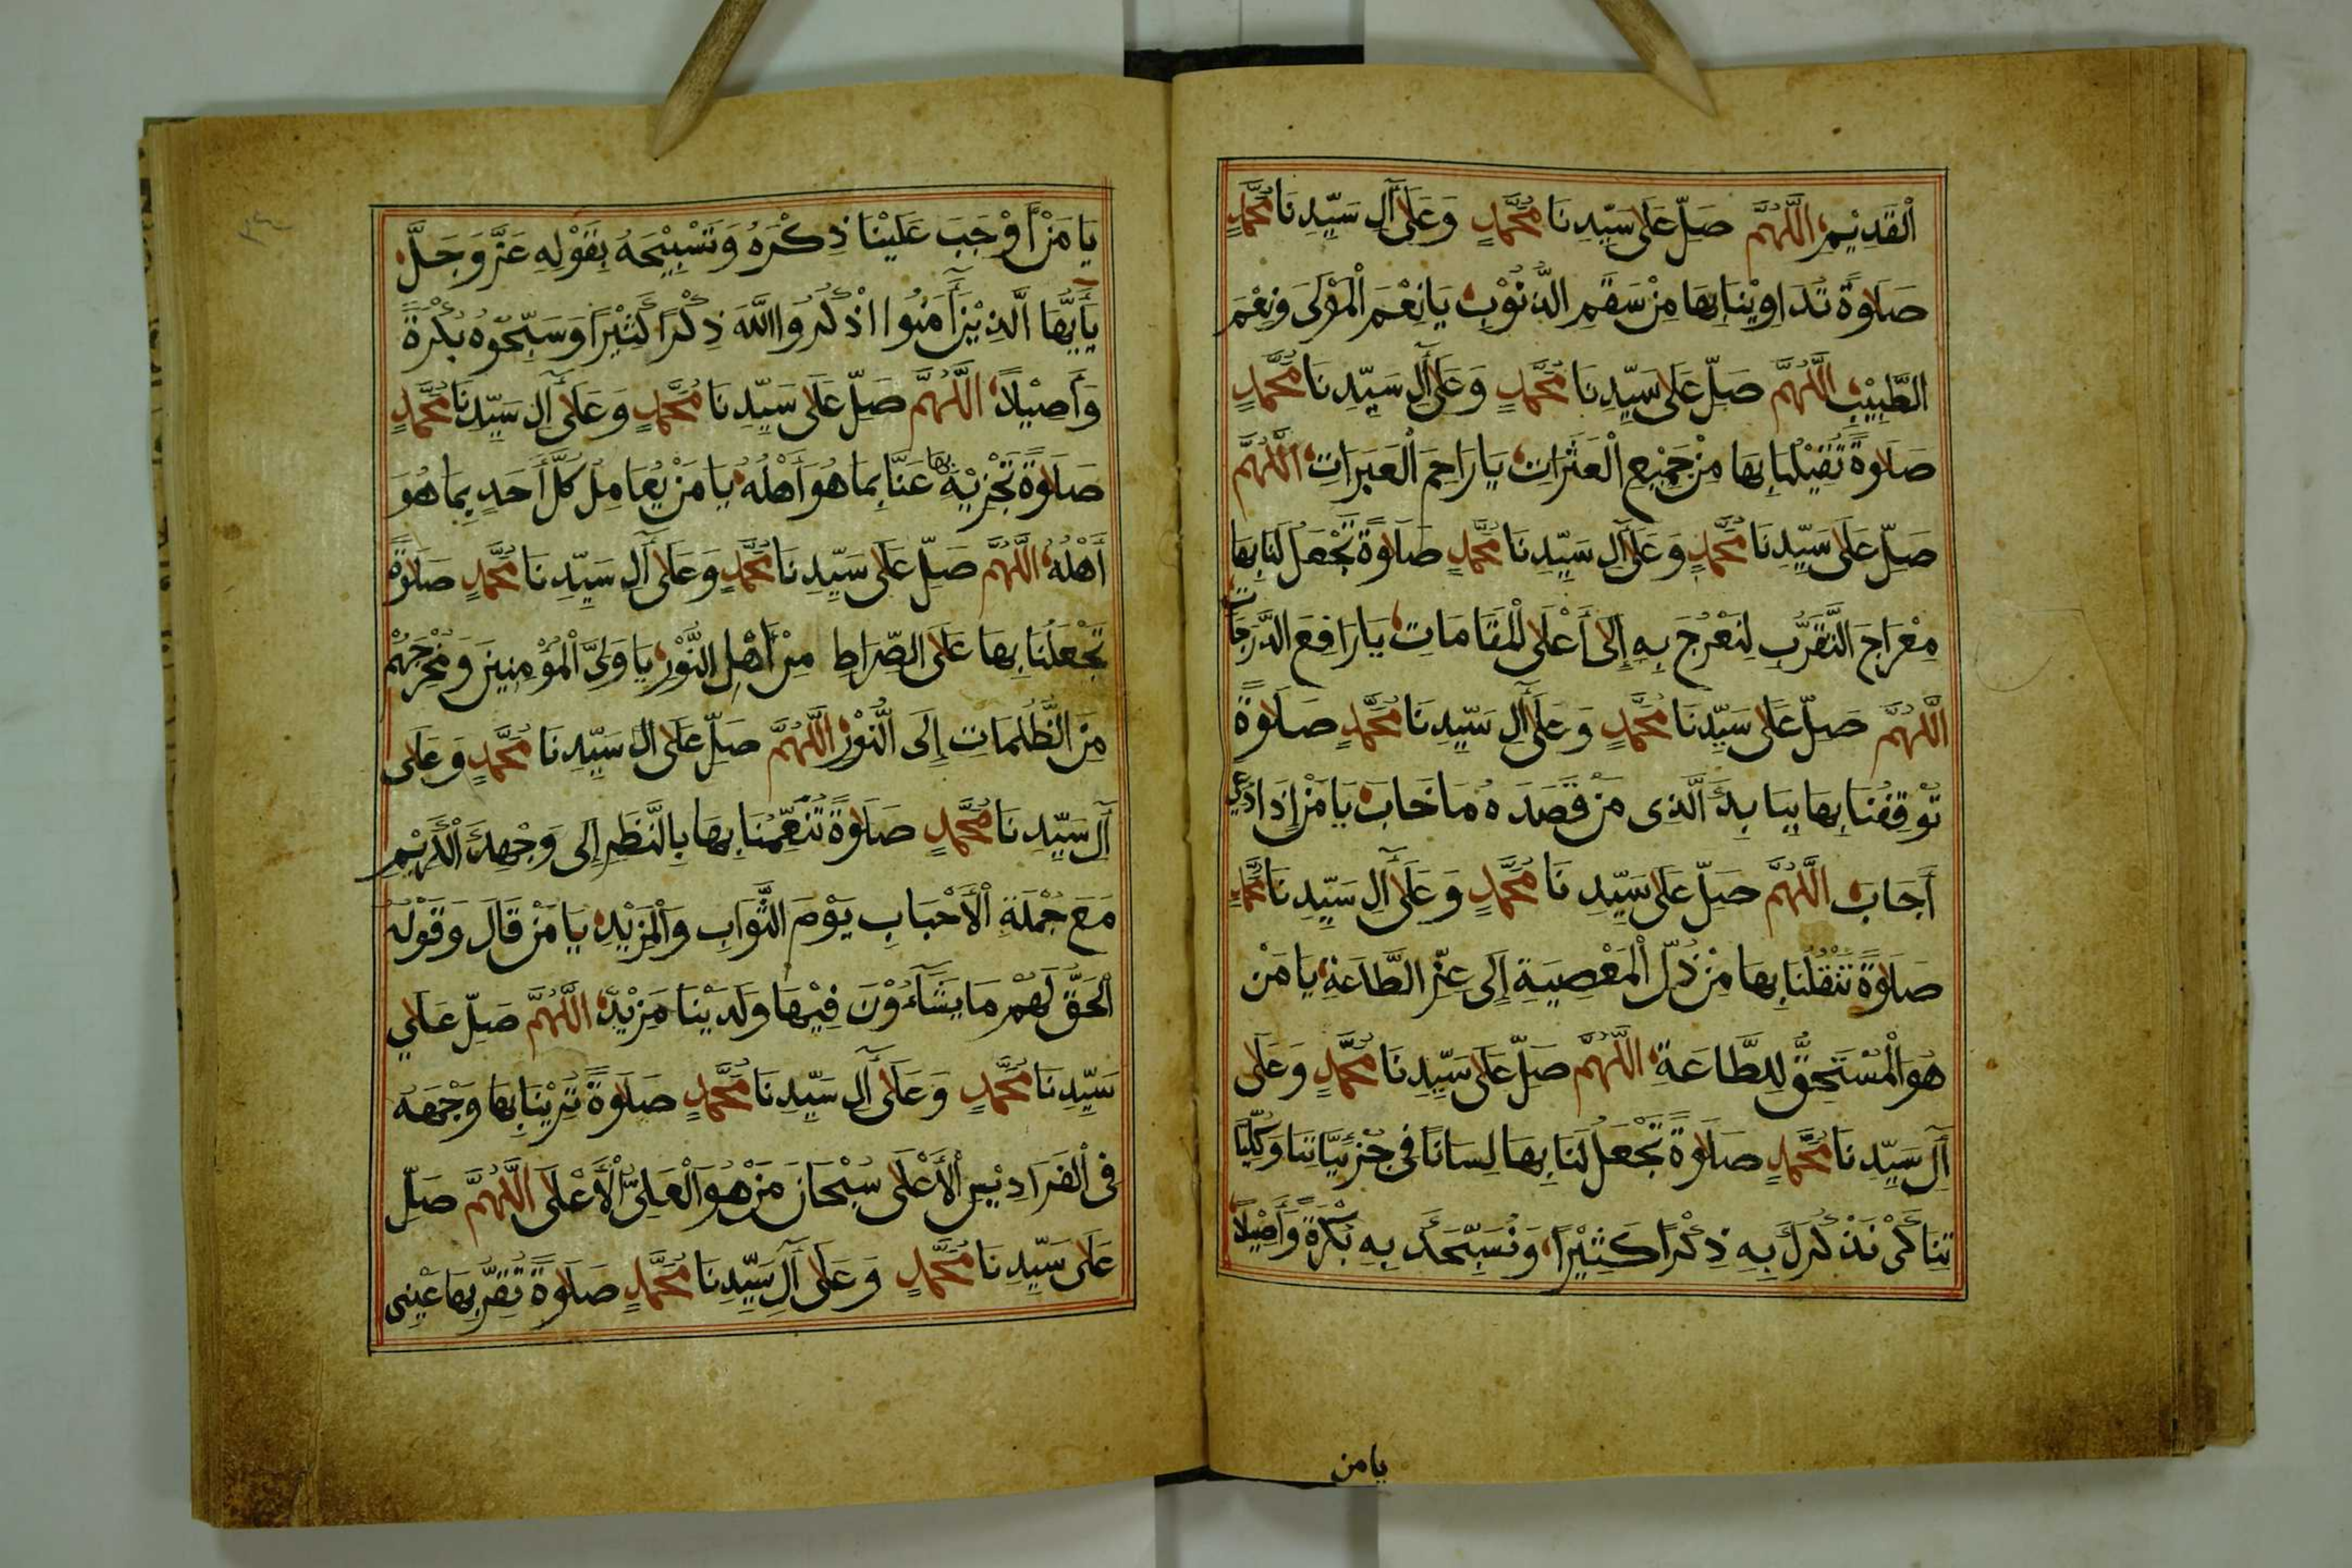 اْلقَدِيْمِ اَللَّهُمَّ صَلِّ عَلَى سَيِّدِنَا مُحَمَّدٍ وَعَلَى آلِ سَيِّدِنَا مُحَمَّدٍ
صَلَاوةً تُدَاوِيْنَا بِهَا مِنْ سَقَمِ الذُّنُوْبِ يَا نِعْمَ الْمَوْلَى وَنِعْمَ
الطَّبِيْبُ اَللَّهُمَّ صَلِّ عَلَى سَيِّدِنَا مُحَمَّدٍ وَعَلَى آلِ سَيِّدِنَا مُحَمَّدٍ
صَلَاوةً تُقِيْلُنَا بِهَا مِنْ جَمِيْعِ الْعَثَرَاتِ يَا رَاحِمَ الْعَبَرَاتِ اَللَّهُمَّ
صَلِّ عَلَى سَيِّدِنَا مُحَمَّدٍ وَعَلَى آلِ سَيِّدِنَا مُحَمَّدٍ صَلَاوةً تَجْعَلُ لَنَا بِهَا
مِعْرَاجَ التَّقَرُّبِ لِنَعْرُجَ بِهِ إِلَى أَعْلَى الْمَقَامَاتِ يَا رَافِعَ الدَّرَجَاتِ
اَللَّهُمَّ صَلِّ عَلَى سَيِّدِنَا مُحَمَّدٍ وَعَلَى آلِ سَيِّدِنَا مُحَمَّدٍ صَلَاوةً
تُوْقِفُنَا بِهَا بِبَابِكَ الَّذِى مَنْ قَصَدَهُ مَا خَابَ يَا مَنْ إِذَا دُعِيَ
أَجَابَ اَللَّهُمَّ صَلِّ عَلَى سَيِّدِنَا مُحَمَّدٍ وَعَلَى آلِ سَيِّدِنَا مُحَمَّدٍ
صَلَاوةً تَنْقُلُنَا بِهَا مِنْ ذُلِّ الْمَعْصِيَةِ إِلَى عِزِّ الطَّاعَةِ يَا مَنْ
هُوَ الْمُسْتَحِقُّ لِلطَّاعَةِ اَللَّهُمَّ صَلِّ عَلَى سَيِّدِنَا مُحَمَّدٍ وَعَلَى
آلِ سَيِّدِنَا مُحَمَّدٍ صَلَاوةً تَجْعَلُ لَنَا بِهَا لِسَانًا فِى جُزْئِيَّاتِنَا وَكُلِّيَّا
تِنَا كَىْ نَذْكُرَكَ بِهِ ذِكْرًا كَثِيْرًا وَنُسَبِّحَكَ بِهِ بُكْرَةً وَأَصِيْلًا
يا من
يَا مَنْ أَوْجَبَ عَلَيْنَا ذِكْرَهُ وَتَسْبِيْحَهُ بِقَوْلِهِ عَزَّ وَجَلَّ
يَأَيُّهَا الَّذِيْنَ أَمَنُوا اذْكُرُوا اللَّهَ ذِكْرًا كَثِيْرًا وَسَبِّحُوهُ بُكْرَةً
وَأَصِيْلًا اَللَّهُمَّ صَلِّ عَلَى سَيِّدِنَا مُحَمَّدٍ وَعَلَى آلِ سَيِّدِنَا مُحَمَّدٍ
صَلَاوةً تَجْزِيْهِ بها عَنَّا بِمَا هُوَ أَهْلُهُ يَا مَنْ يُعَامِلُ كُلَّ أَحَدٍ بِمَا هُوَ
أَهْلُهُ اَللَّهُمَّ صَلِّ عَلَى سَيِّدِنَا مُحَمَّدٍ وَعَلَى آلِ سَيِّدِنَا مُحَمَّدٍ صَلَاوةً
تَجْعَلُنَا بِهَا عَلَى الصِّرَاطِ مِنْ أَهْلِ النُّوْرِ يَا وَلِىَّ الْمُؤْمِنِينَ وَمُخْرِجَهُمْ
مِنَ الظُّلُمَاتِ إِلَى النُّوْرِ اَللَّهُمَّ صَلِّ عَلَى ال سَيِّدِنَا مُحَمَّدٍ وَعَلَى
آلِ سَيِّدِنَا مُحَمَّدٍ صَلَاوةً تُنَعِّمُنَا بِهَا بِالنَّظَرِ إِلَى وَجْهِكَ الْكَرِيْمِ
مَعَ جُمْلَةِ الْأَحْبَابِ يَوْمَ الثَّوَابِ وَالْمَزِيْدِ يَا مَنْ قَالَ وَقَوْلُهُ
الْحَقُّ لَهُمْ مَا يَشَاءُوْنَ فِيْهَا وَلَدَيْنَا مَزِيْدٌ اَللَّهُمَّ صَلِّ عَلَى
سَيِّدِنَا مُحَمَّدٍ وَعَلَى آلِ سَيِّدِنَا مُحَمَّدٍ صَلَاوةً تُرِيْنَا بِهَا وَجْهَهُ
فِى الْفَرَادِيْسِ الْأَعْلَى سُبْحَانَ مَنْ هُوَ الْعَلِىُّ الْأَعْلَى اَللَّهُمَّ صَلِّ
عَلَى سَيِّدِنَا مُحَمَّدٍ وَعَلَى آلِ سَيِّدِنَا مُحَمَّدٍ صَلَاوةً تُقِرُّ بِهَا عَيْنِى